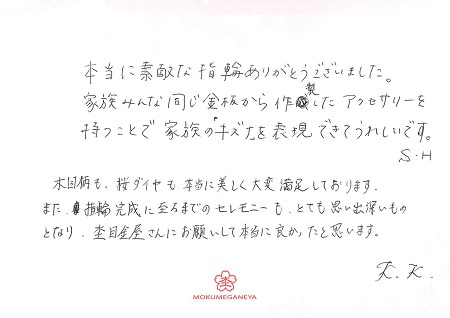 本当に素敵な指輪ありがとうございました。
家族みんな同じ金板から作製したアクセサリーを
持つことで家族の「キズナ」を表現できてうれしいです。
S.H
木目柄も、桜ダイヤも本当に美しく大変満足しております。
また、指輪完成に至るまでのセレモニーも、とても思い出深いもの
となり、杢目金屋さんにお願いして本当に良かったと思います。
K.K.
杢
MOKUMEGANEYA